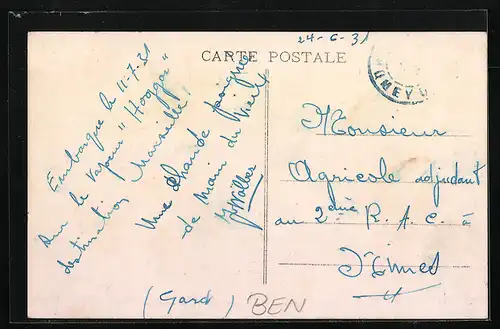 24-6-31
CARTE POSTALE
Embarque le 11-7-31
sur le vapeur "Hoggar"
destination Marseille!
Une chaude poignée
de main du vieil
Monsieur
Agricole adjudant
au 2ème R. A. C. à
Nîmes
(Gard)
BEN